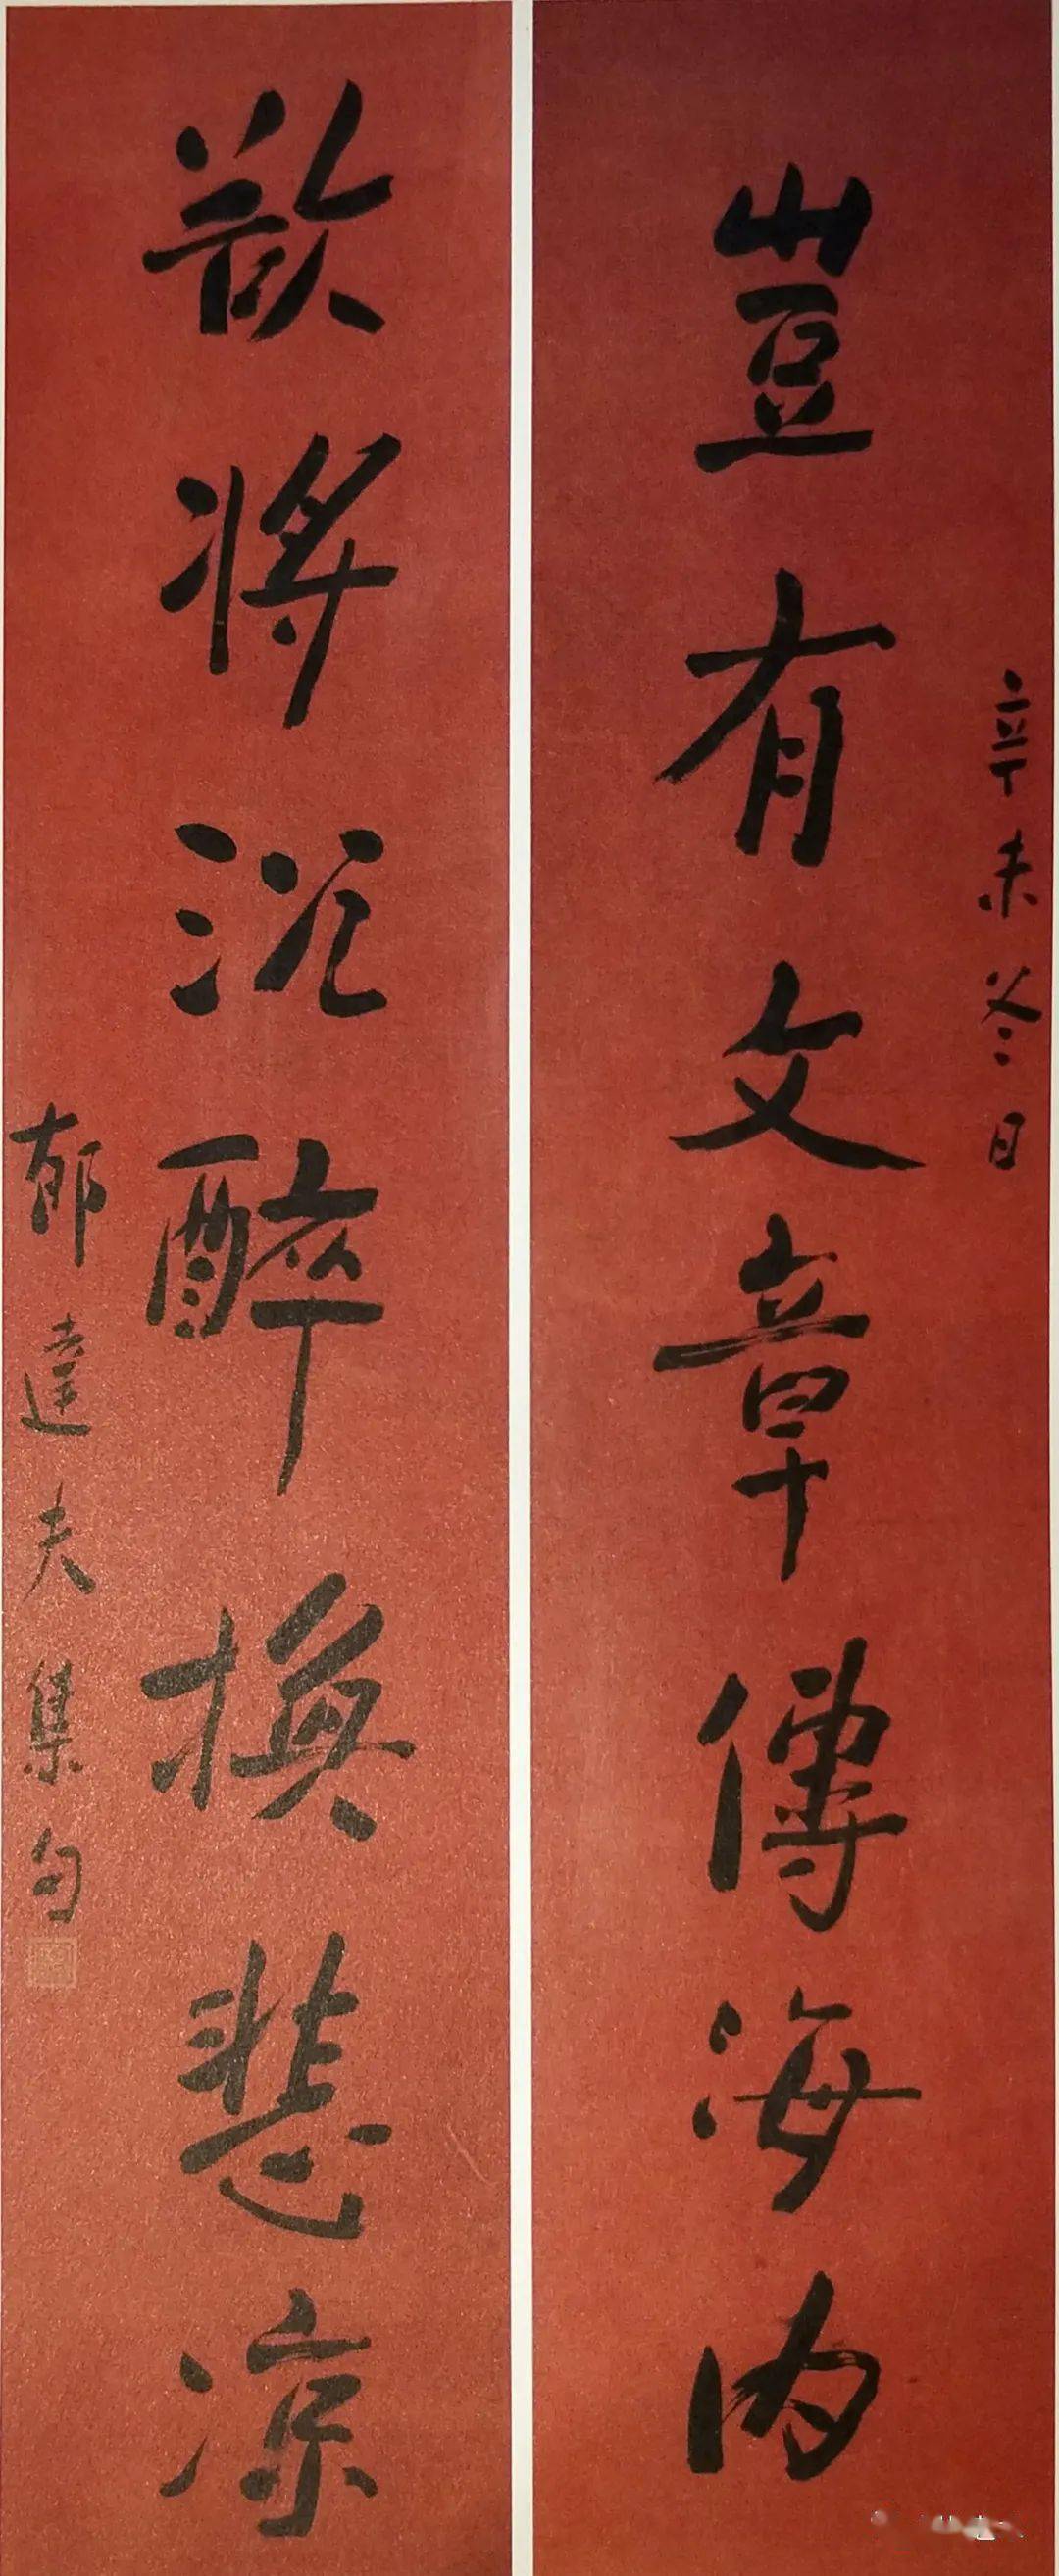 辛未冬日
豈有文章傳海內
欲將沉醉換悲涼
郁達夫集句